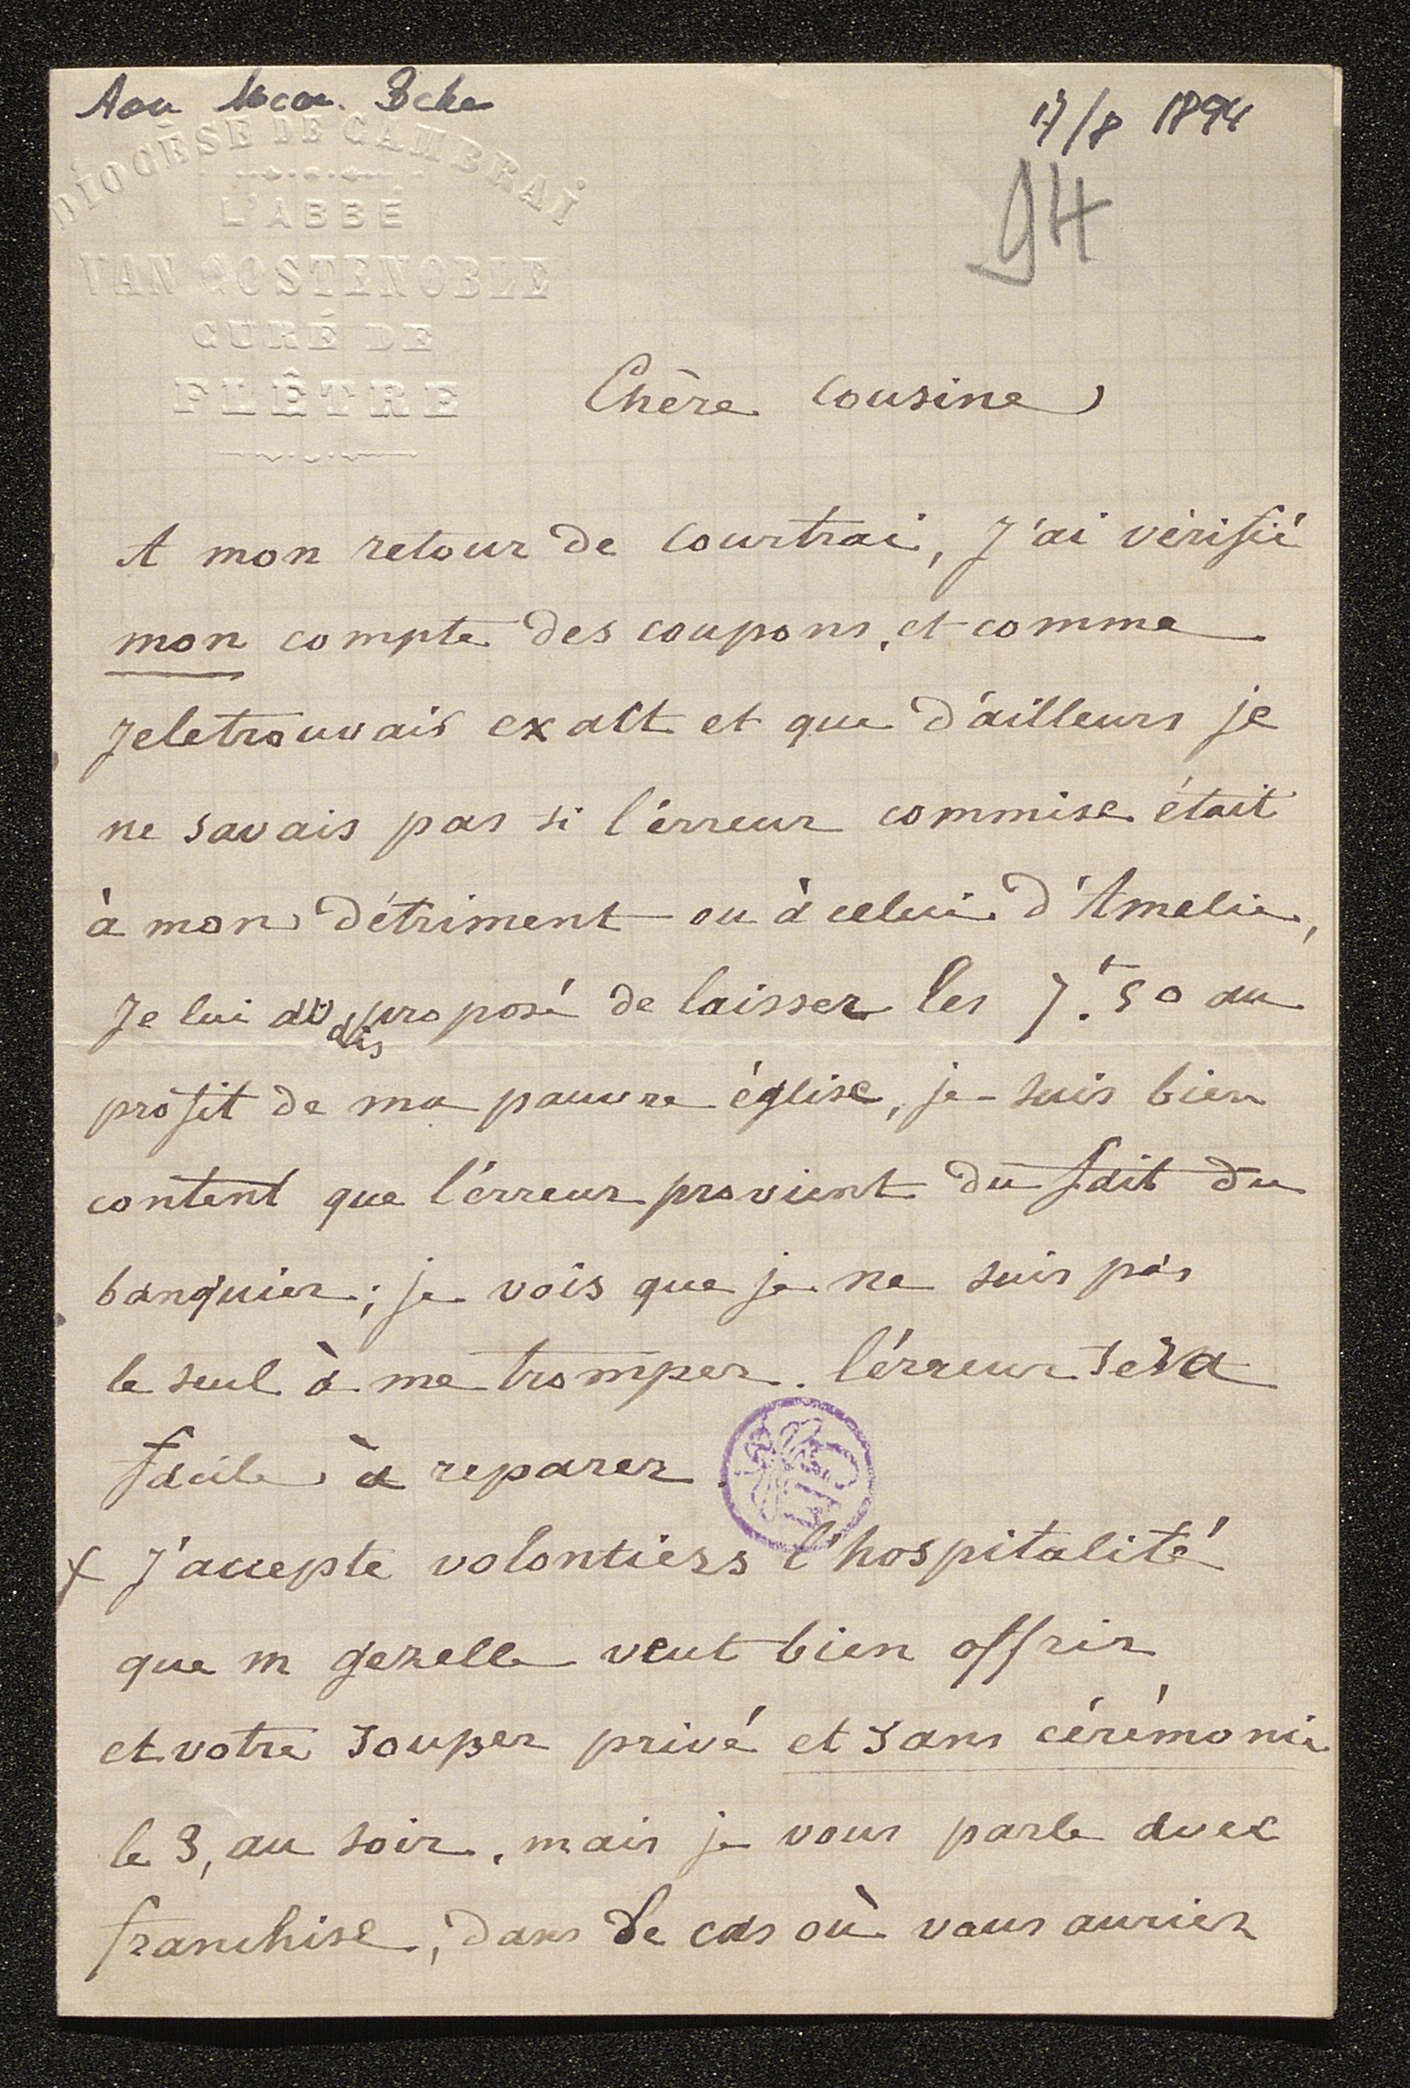 Aan
17/8 1894
DIOCÈSE DE CAMBRAI
94
L'ABBÉ
VAN COSTENOBLE
CURÉ DE
FLÊTRE
Chère Cousine
A mon retour de Courtrai, J'ai vérifié
mon compte des coupons, et comme
Je le trouvais exact et que d'ailleurs je
ne savais pas si l'érreur commise était
à mon détriment ou à celui d'Amelie,
Je lui ai dis proposé de laisser les 7.f 50 au
profit de ma pauvre église, je suis bien
content que l'érreur provient du fait du
banquier; je vois que je ne suis pas
le seul à me tromper. l'érreur sera
facile à reparer.
J'accepte volontiers l'hospitalité
que m gezelle veut bien offrir
et votre souper privé et sans cérémonie
le 3, au soir. mais je vous parle avec
franchise, dans le cas où vous auriez